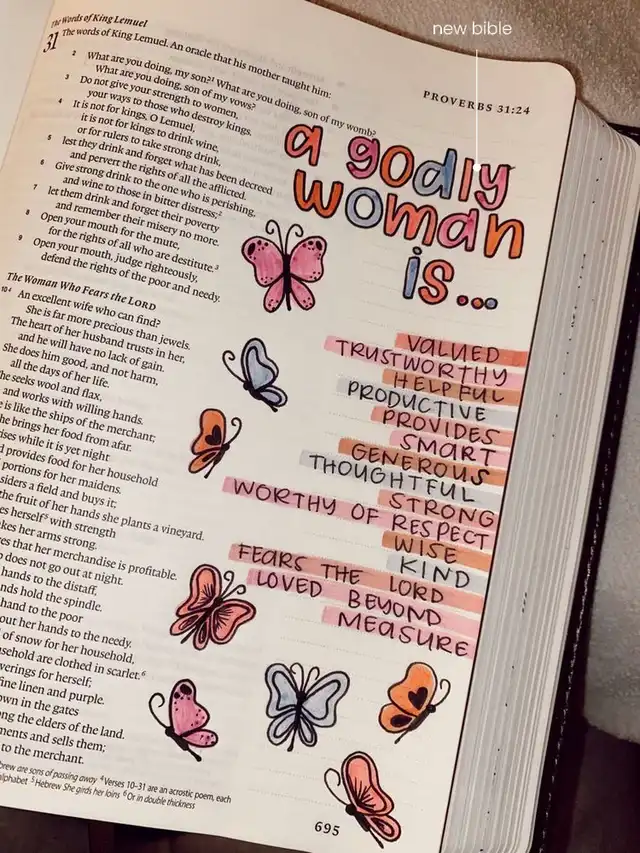 new bible
PROVERBS 31:24
The Words of King Lemuel
31 The words of King Lemuel. An oracle that his mother taught him:
2 What are you doing, my son?1 What are you doing, son of my womb?
What are you doing, son of my vows?
3 Do not give your strength to women,
your ways to those who destroy kings.
4 It is not for kings, O Lemuel,
it is not for kings to drink wine,
or for rulers to take strong drink,
5 lest they drink and forget what has been decreed
and pervert the rights of all the afflicted.
6 Give strong drink to the one who is perishing,
and wine to those in bitter distress;2
7 let them drink and forget their poverty
and remember their misery no more.
8 Open your mouth for the mute,
for the rights of all who are destitute.3
9 Open your mouth, judge righteously,
defend the rights of the poor and needy.
The Woman Who Fears the LORD
10 4 An excellent wife who can find?
She is far more precious than jewels.
The heart of her husband trusts in her,
and he will have no lack of gain.
She does him good, and not harm,
all the days of her life.
he seeks wool and flax,
and works with willing hands.
e is like the ships of the merchant;
he brings her food from afar.
ises while it is yet night
d provides food for her household
portions for her maidens.
siders a field and buys it;
the fruit of her hands she plants a vineyard.
es herself5 with strength
kes her arms strong.
es that her merchandise is profitable.
p does not go out at night.
hands to the distaff,
nds hold the spindle.
hand to the poor
out her hands to the needy.
of snow for her household,
usehold are clothed in scarlet.6
verings for herself;
fine linen and purple.
own in the gates
ng the elders of the land.
ments and sells them;
to the merchant.
brew are sons of passing away 4 Verses 10–31 are an acrostic poem, each
alphabet 5 Hebrew She girds her loins 6 Or in double thickness
a godly
woman
is...
VALUED
TRUSTWORTHY
HELPFUL
PRODUCTIVE
PROVIDES
SMART
GENEROUS
THOUGHTFUL
STRONG
WORTHY OF RESPECT
WISE
KIND
FEARS THE LORD
LOVED BEYOND
MEASURE
695